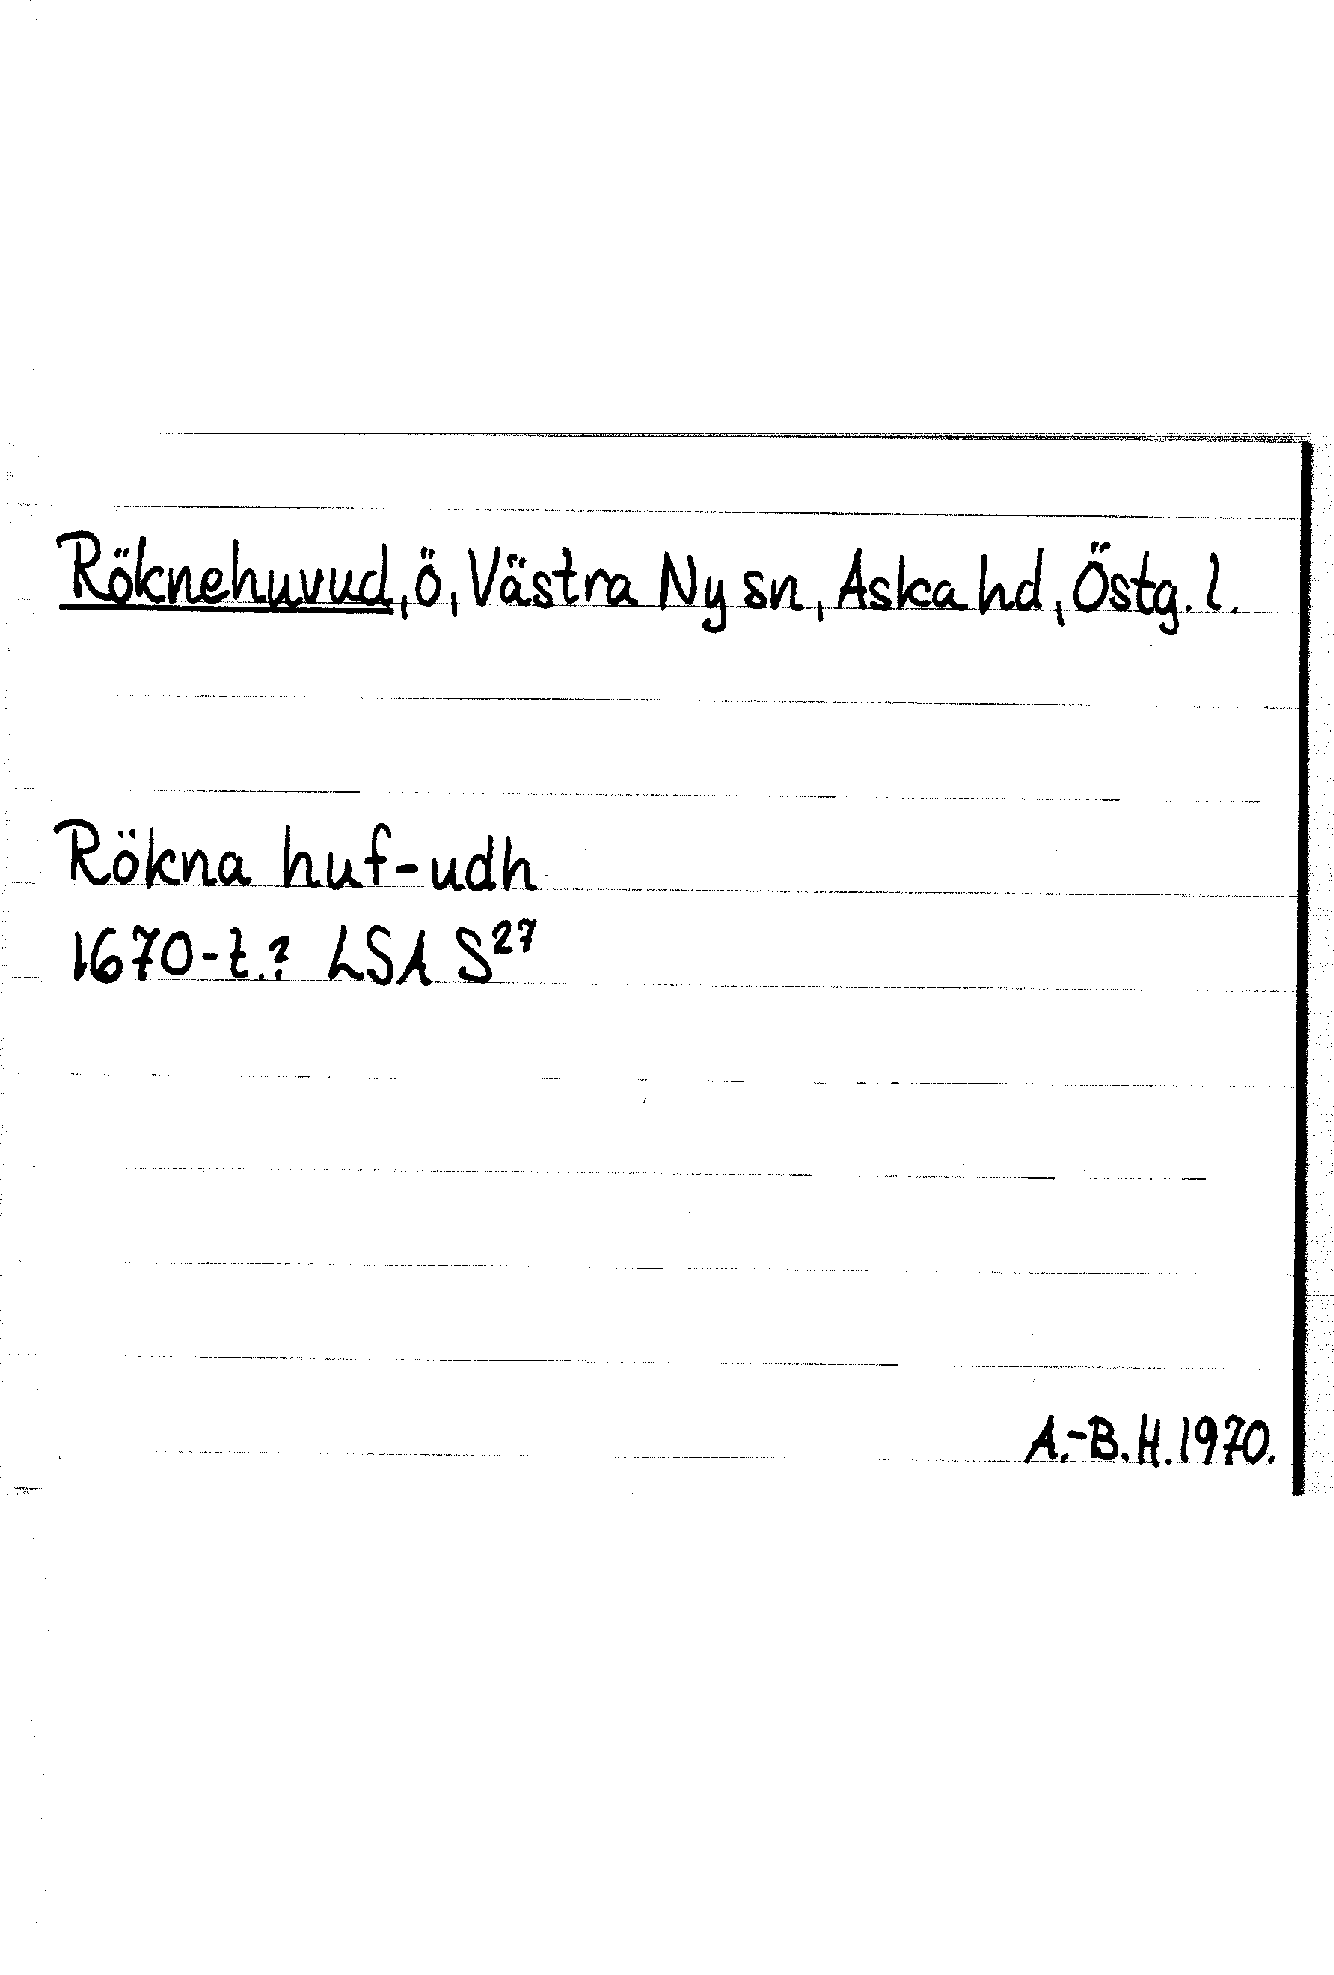 Röknehuvud, ö, Västra Ny sn, Aska hd, Östg. l.
Rökna huf-udh
1670-t.? LSA S²⁷
A.-B.H. 1970.